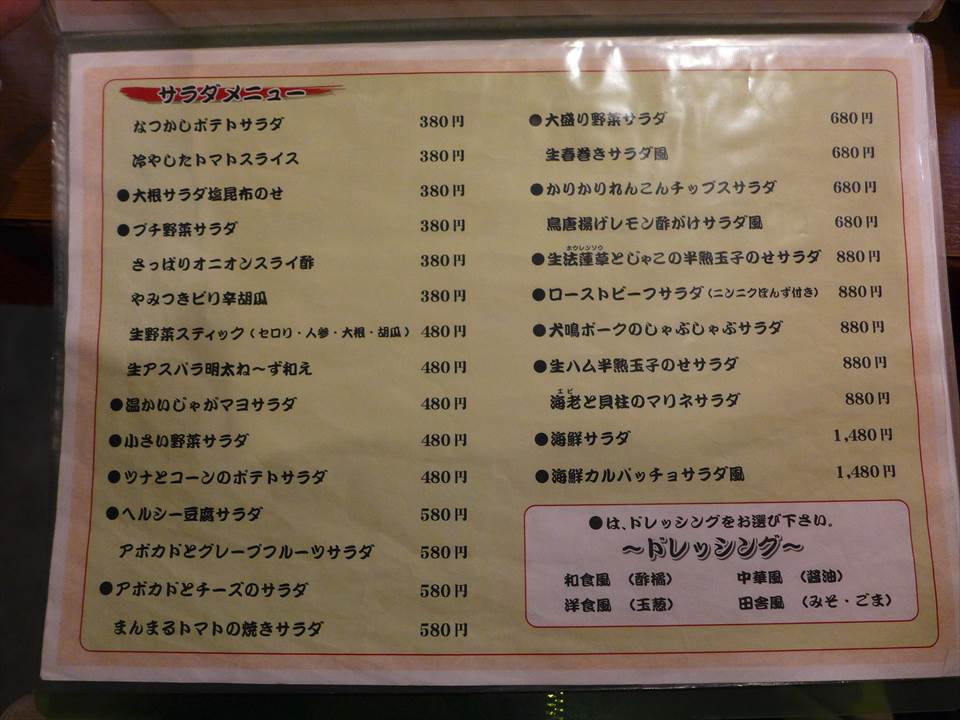 サラダメニュー
なつかしポテトサラダ 380円
冷やしたトマトスライス 380円
●大根サラダ塩昆布のせ 380円
●プチ野菜サラダ 380円
さっぱりオニオンスライ酢 380円
やみつきピリ辛胡瓜 380円
生野菜スティック(セロリ・人参・大根・胡瓜) 480円
生アスパラ明太ね〜ず和え 480円
●温かいじゃがマヨサラダ 480円
●小さい野菜サラダ 480円
●ツナとコーンのポテトサラダ 480円
●ヘルシー豆腐サラダ 580円
アボカドとグレープフルーツサラダ 580円
●アボカドとチーズのサラダ 580円
まんまるトマトの焼きサラダ 580円
●大盛り野菜サラダ 680円
生春巻きサラダ風 680円
●かりかりれんこんチップスサラダ 680円
鳥唐揚げレモン酢がけサラダ風 680円
ホウレンソウ
●生法蓮草とじゃこの半熟玉子のせサラダ 880円
●ローストビーフサラダ(ニンニクぽんず付き) 880円
●犬鳴ポークのしゃぶしゃぶサラダ 880円
●生ハム半熟玉子のせサラダ 880円
エビ
海老と貝柱のマリネサラダ 880円
●海鮮サラダ 1,480円
●海鮮カルパッチョサラダ風 1,480円
●は、ドレッシングをお選び下さい。
〜ドレッシング〜
和食風 (酢橘) 中華風 (醤油)
洋食風 (玉葱) 田舎風 (みそ・ごま)